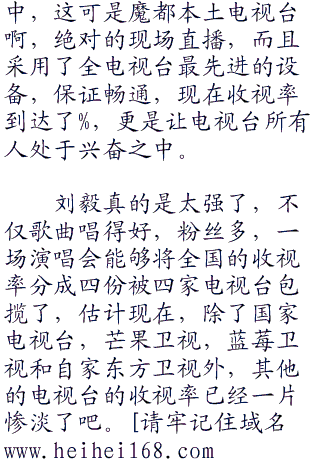 中，这可是魔都本土电视台
啊，绝对的现场直播，而且
采用了全电视台最先进的设
备，保证畅通，现在收视率
到达了%，更是让电视台所有
人处于兴奋之中。
刘毅真的是太强了，不
仅歌曲唱得好，粉丝多，一
场演唱会能够将全国的收视
率分成四份被四家电视台包
揽了，估计现在，除了国家
电视台，芒果卫视，蓝莓卫
视和自家东方卫视外，其他
的电视台的收视率已经一片
惨淡了吧。[请牢记住域名
www.heihei168.com